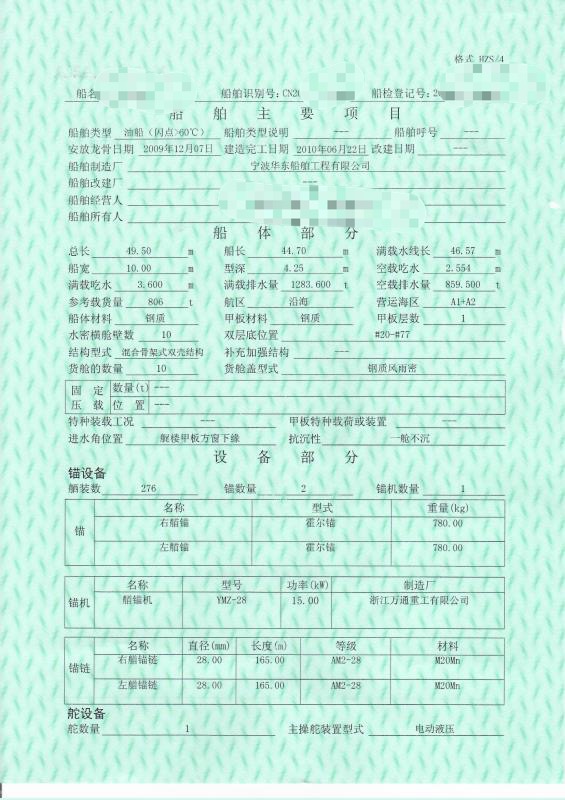 格式 HZS/4
船名 船舶识别号: CN20 船检登记号: 20
船 舶 主 要 项 目
船舶类型 油船（闪点>60℃） 船舶类型说明 --- 船舶呼号 ---
安放龙骨日期 2009年12月07日 建造完工日期 2010年06月22日 改建日期 ---
船舶制造厂 宁波华东船舶工程有限公司
船舶改建厂 ---
船舶经营人
船舶所有人
船 体 部 分
总长 49.50 m 船长 44.70 m 满载水线长 46.57 m
船宽 10.00 m 型深 4.25 m 空载吃水 2.554 m
满载吃水 3.600 m 满载排水量 1283.600 t 空载排水量 859.500 t
参考载货量 806 t 航区 沿海 营运海区 A1+A2
船体材料 钢质 甲板材料 钢质 甲板层数 1
水密横舱壁数 10 双层底位置 #20-#77
结构型式 混合骨架式双壳结构 补充加强结构 ---
货舱的数量 10 货舱盖型式 钢质风雨密
固 定 数量(t) ---
压 载 位 置 ---
特种装载工况 --- 甲板特种载荷或装置 ---
进水角位置 艉楼甲板方窗下缘 抗沉性 一舱不沉
设 备 部 分
锚设备
舾装数 276 锚数量 2 锚机数量 1
名称 型式 重量(kg)
锚
右艏锚 霍尔锚 780.00
左艏锚 霍尔锚 780.00
名称 型号 功率(kW) 制造厂
锚机 艏锚机 YMZ-28 15.00 浙江万通重工有限公司
名称 直径(mm) 长度(m) 等级 材料
锚链
右艏锚链 28.00 165.00 AM2-28 M20Mn
左艏锚链 28.00 165.00 AM2-28 M20Mn
舵设备
舵数量 1 主操舵装置型式 电动液压